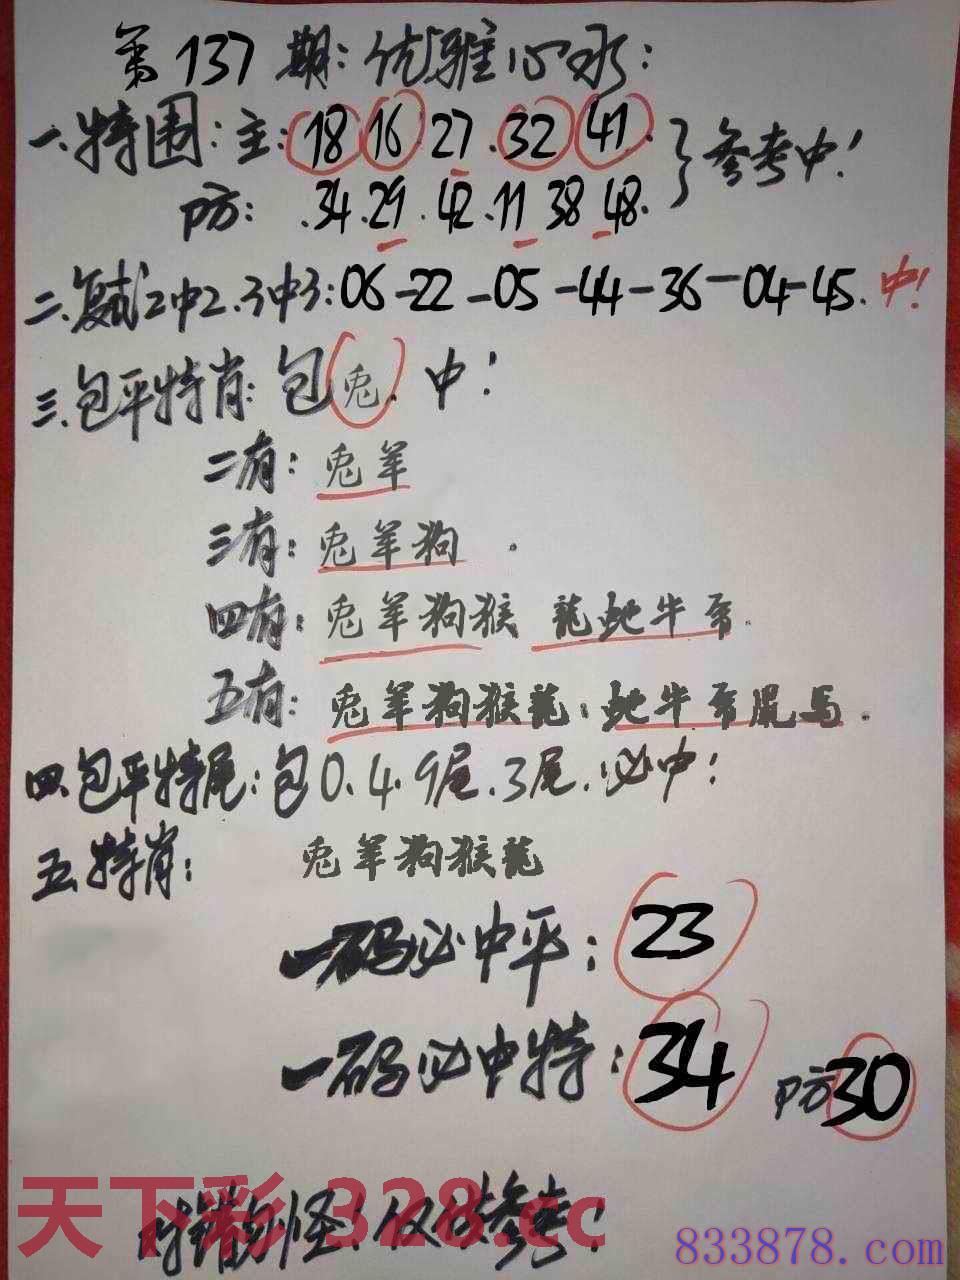 第137期:优雅心水:
一.特围:主:18 16 27.32 41.}参考中!
防:.34.29.42.11 38 48.
二.复式2中2.3中3:06-22-05-44-36-04-45.中!
三.包平特肖:包兔.中!
二有:兔羊
三有:兔羊狗.
四有:兔羊狗猴 龍蛇牛
五有:兔羊狗猴龍:蛇牛 鼠馬.
四.包平特尾:包0.4.9尾.3尾.必中!
五.特肖:兔羊狗猴龍
一码必中平:23
一码必中特:34 防30
天下彩 328.cc
对错勿怪!仅供参考!
833878.com